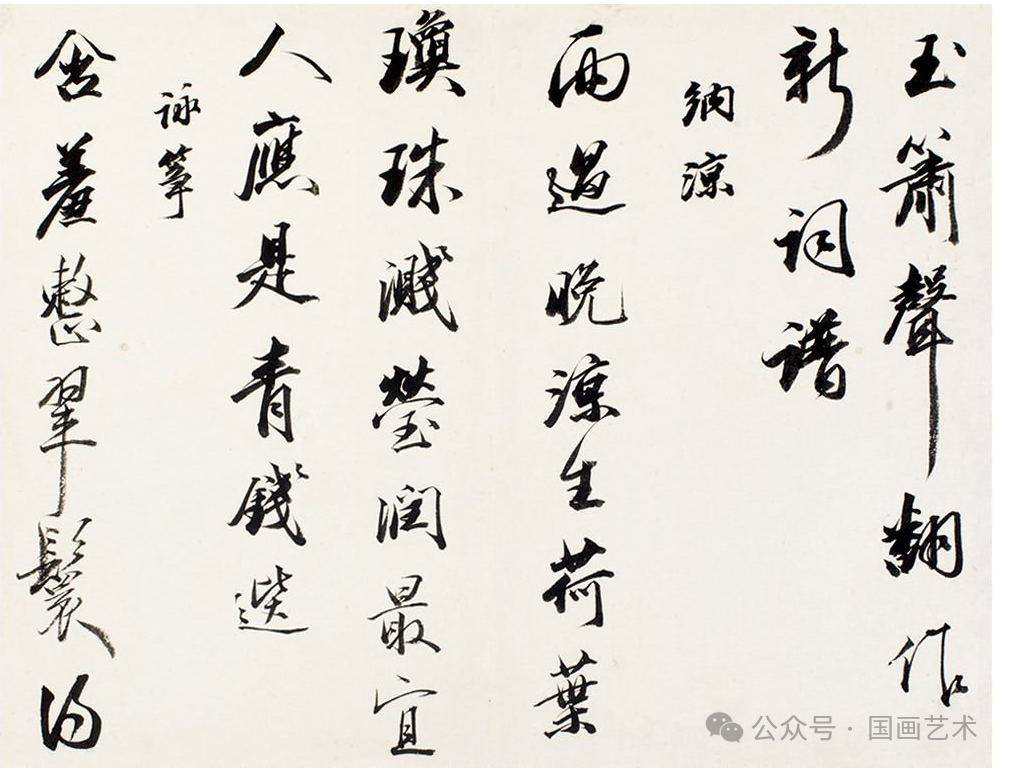 玉簫聲翻作
新詞譜
納涼
雨過晚涼生荷葉
瓊珠濺瑩潤最宜
人應是青錢選
詠箏
含羞整翠鬟得
公众号·国画艺术